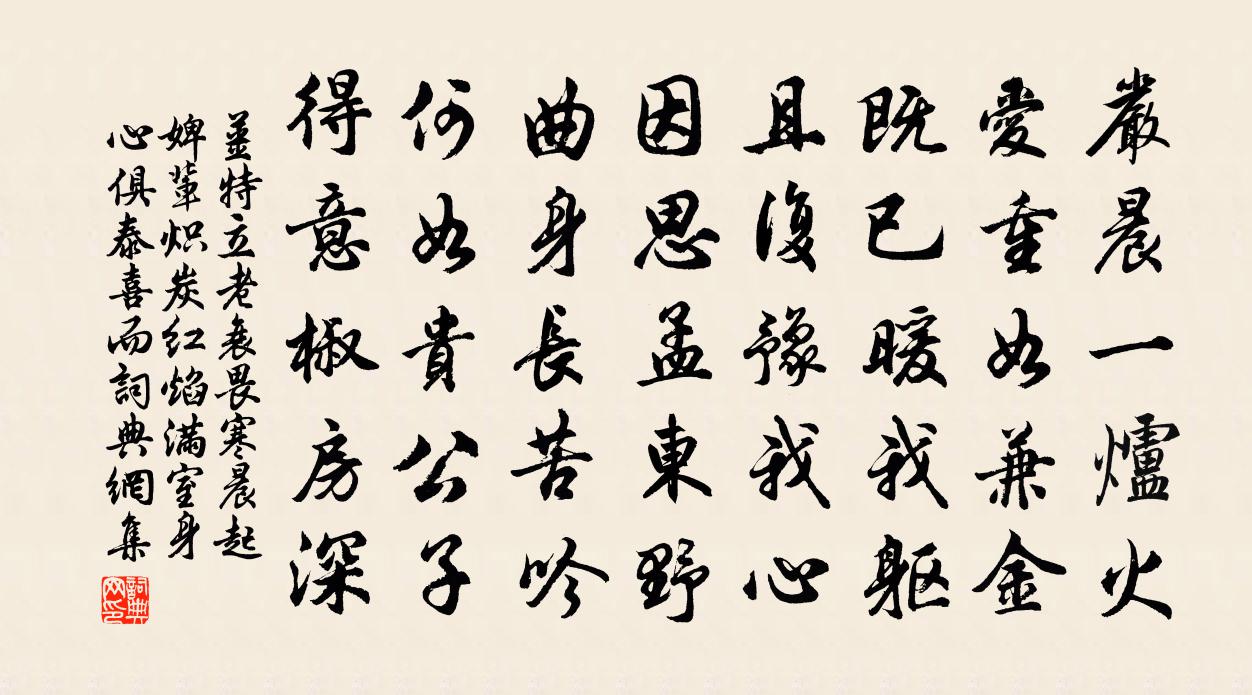 嚴晨一爐火
愛重如兼金
既已暖我軀
且復豫我心
因思孟東野
曲身長苦吟
何如貴公子
得意椒房深
姜特立老衰畏寒晨起
婢輩炽炭红焰滿室身
心俱泰喜而詞典網集
詞典
网印